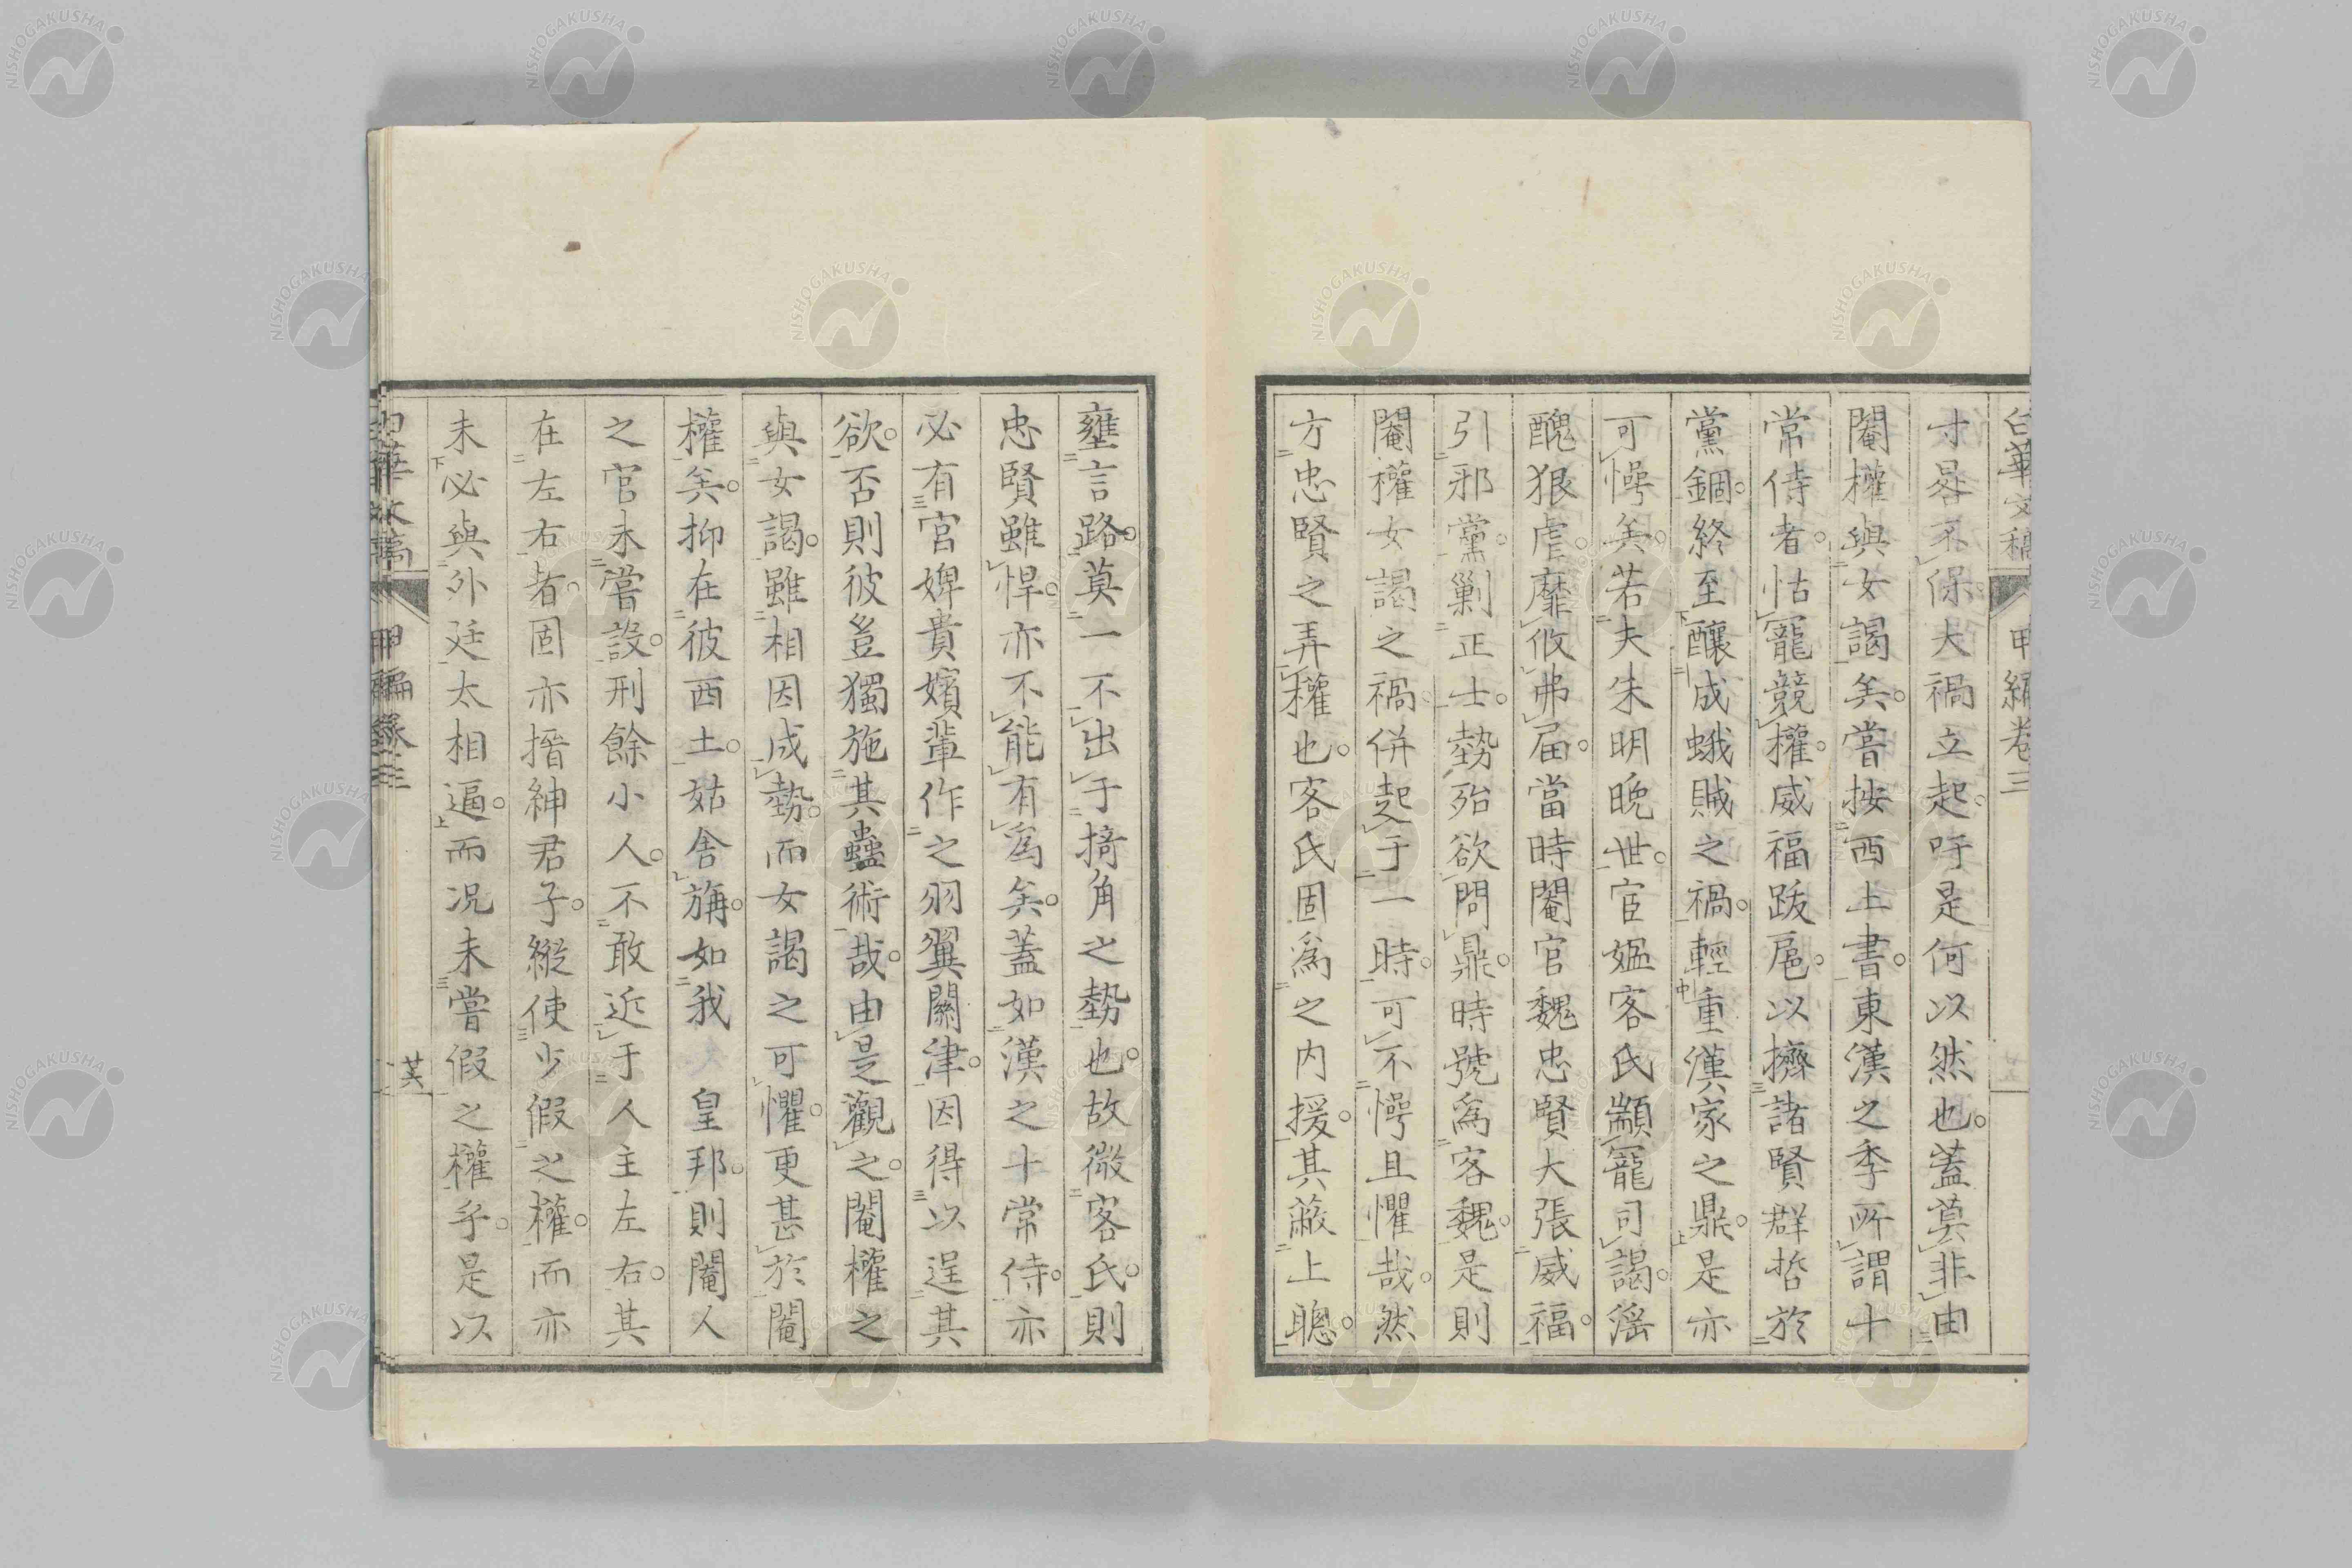 白華文稿 甲編卷三
寸晷不保大禍立起吁是何以然也。蓋莫非由
閹權與女謁矣。嘗按西上書。東漢之季所謂十
常侍者。怙寵競權。威福跋扈。以擠諸賢群哲於
黨錮。終至釀成蛾賊之禍。輕重漢家之鼎。是亦
可愕矣。若夫朱明晚世。宦媼客氏顓寵司謁。淫
醜狠虐。靡攸弗届。當時閹官魏忠賢大張威福。
引邪黨。剿正士。勢殆欲問鼎。時號為客魏。是則
閹權女謁之禍。併起于一時。可不愕且懼哉。然
方忠賢之弄權也。客氏固為之内援。其蔽上聰。
壅言路。莫一不出于掎角之勢也。故微客氏。則
忠賢雖悍。亦不能有為矣。蓋如漢之十常侍。亦
必有宮婢貴嬪輩作之羽翼關津。因得以逞其
欲。否則彼豈獨施其蠱術哉。由是觀之。閹權之
與女謁。雖相因成勢。而女謁之可懼。更甚於閹
權矣。抑在彼西土。姑舎旃。如我 皇邦。則閹人
之官未嘗設。刑餘小人。不敢近于人主左右。其
在左右者。固亦搢紳君子。縱使少假之權。而亦
未必與外廷太相逼。而况未嘗假之權乎。是以
白華文稿 甲編卷三
NISHOGAKUSHA